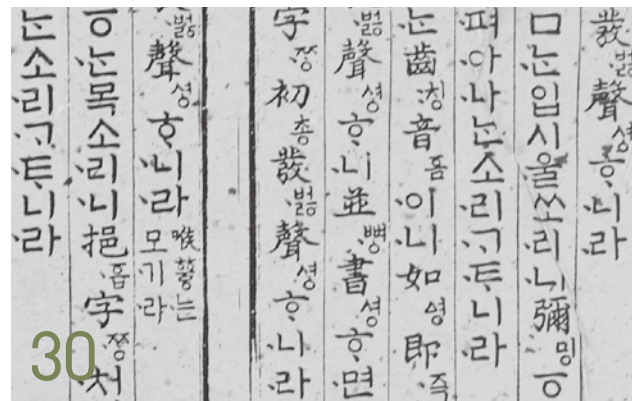 發벓聲셩ᄒᆞ·니·라
ㅁ·ᄂᆞᆫ입시·울쏘·리·니彌밍ㆆ
펴·아·나ᄂᆞᆫ소·리·ᄀᆞᄐᆞ·니·라
·ᄂᆞᆫ齒:칭音ᅙᅳᆷ·이·니如ᅀᅧᆼ即·즉
벓聲셩ᄒᆞ·니並·뼝書셩ᄒᆞ·면
字·ᄍᆞᆼ初총發·벓聲셩ᄒᆞ·니·라
벓聲셩ᄒᆞ·니·라喉ᄂᆞᆫ모기라
ㆆ·ᄂᆞᆫ목소·리·니挹·ᅙᅳᆸ字·ᄍᆞᆼ·처
ᄂᆞᆫ소·리·ᄀᆞᄐᆞ·니·라
30